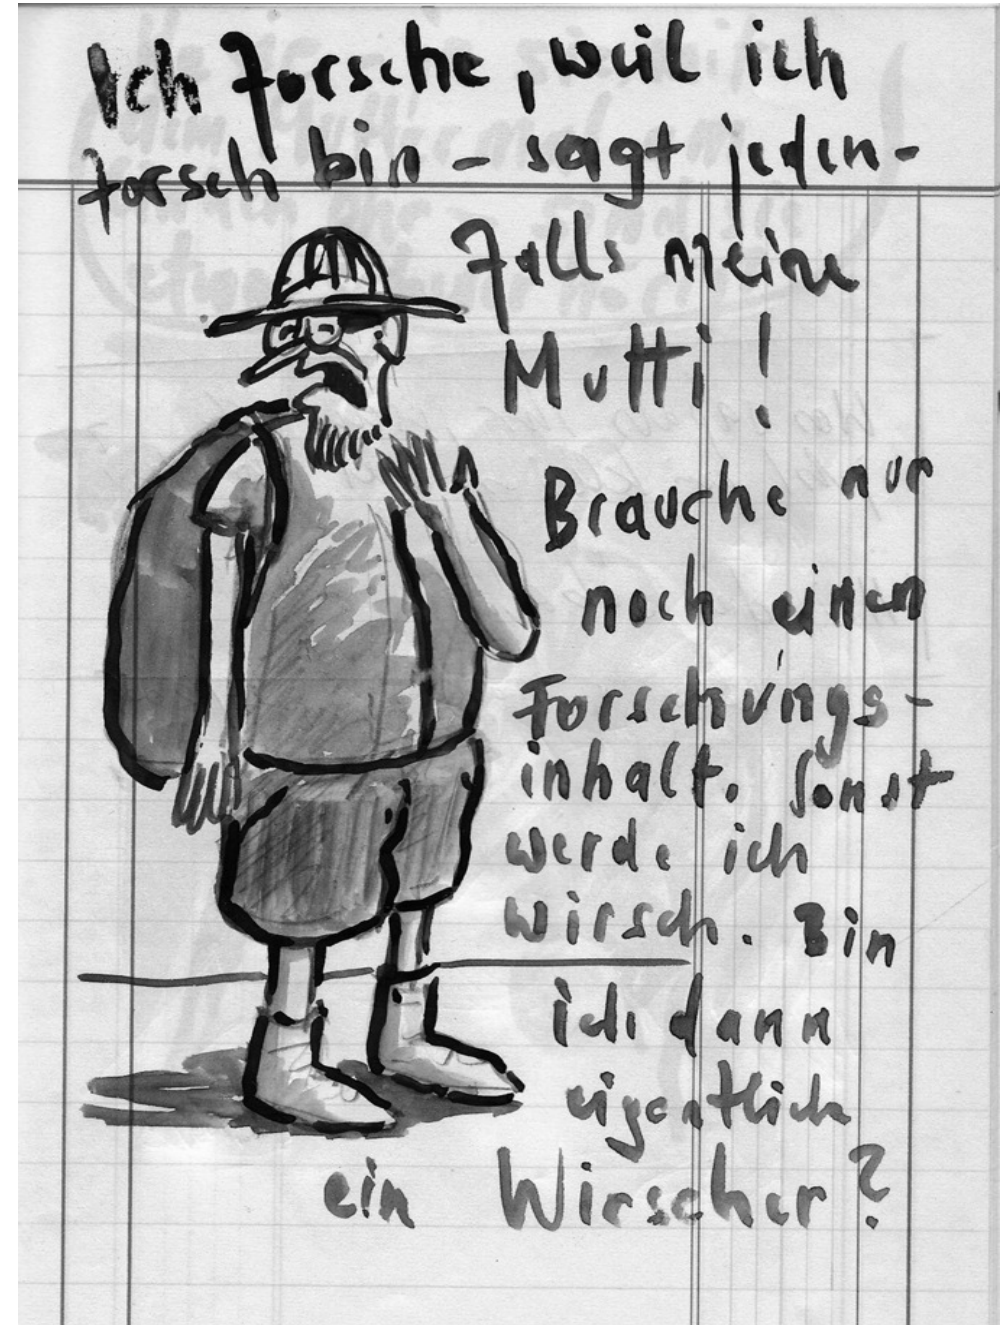 Ich forsche, weil ich
forsch bin - sagt jeden-
falls meine
Mutti!
Brauche nur
noch einen
Forschungs-
inhalt. Sonst
werde ich
wirsch. Bin
ich dann
eigentlich
ein Wirscher?